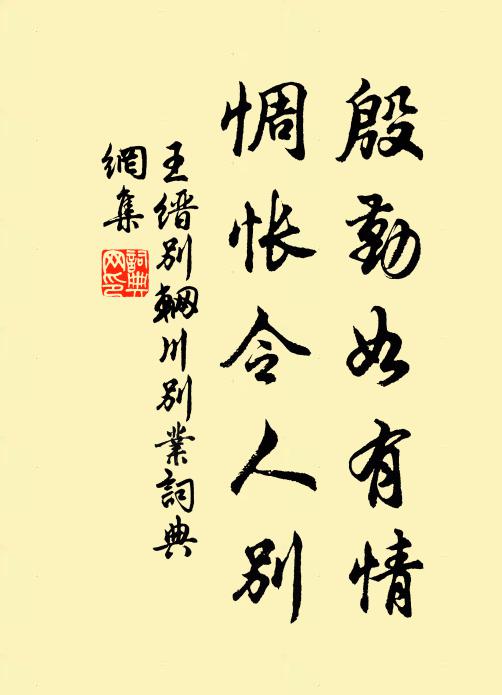 殷勤如有情
惆怅令人别
王缙别辋川别業詞典
網集
詞典
网印